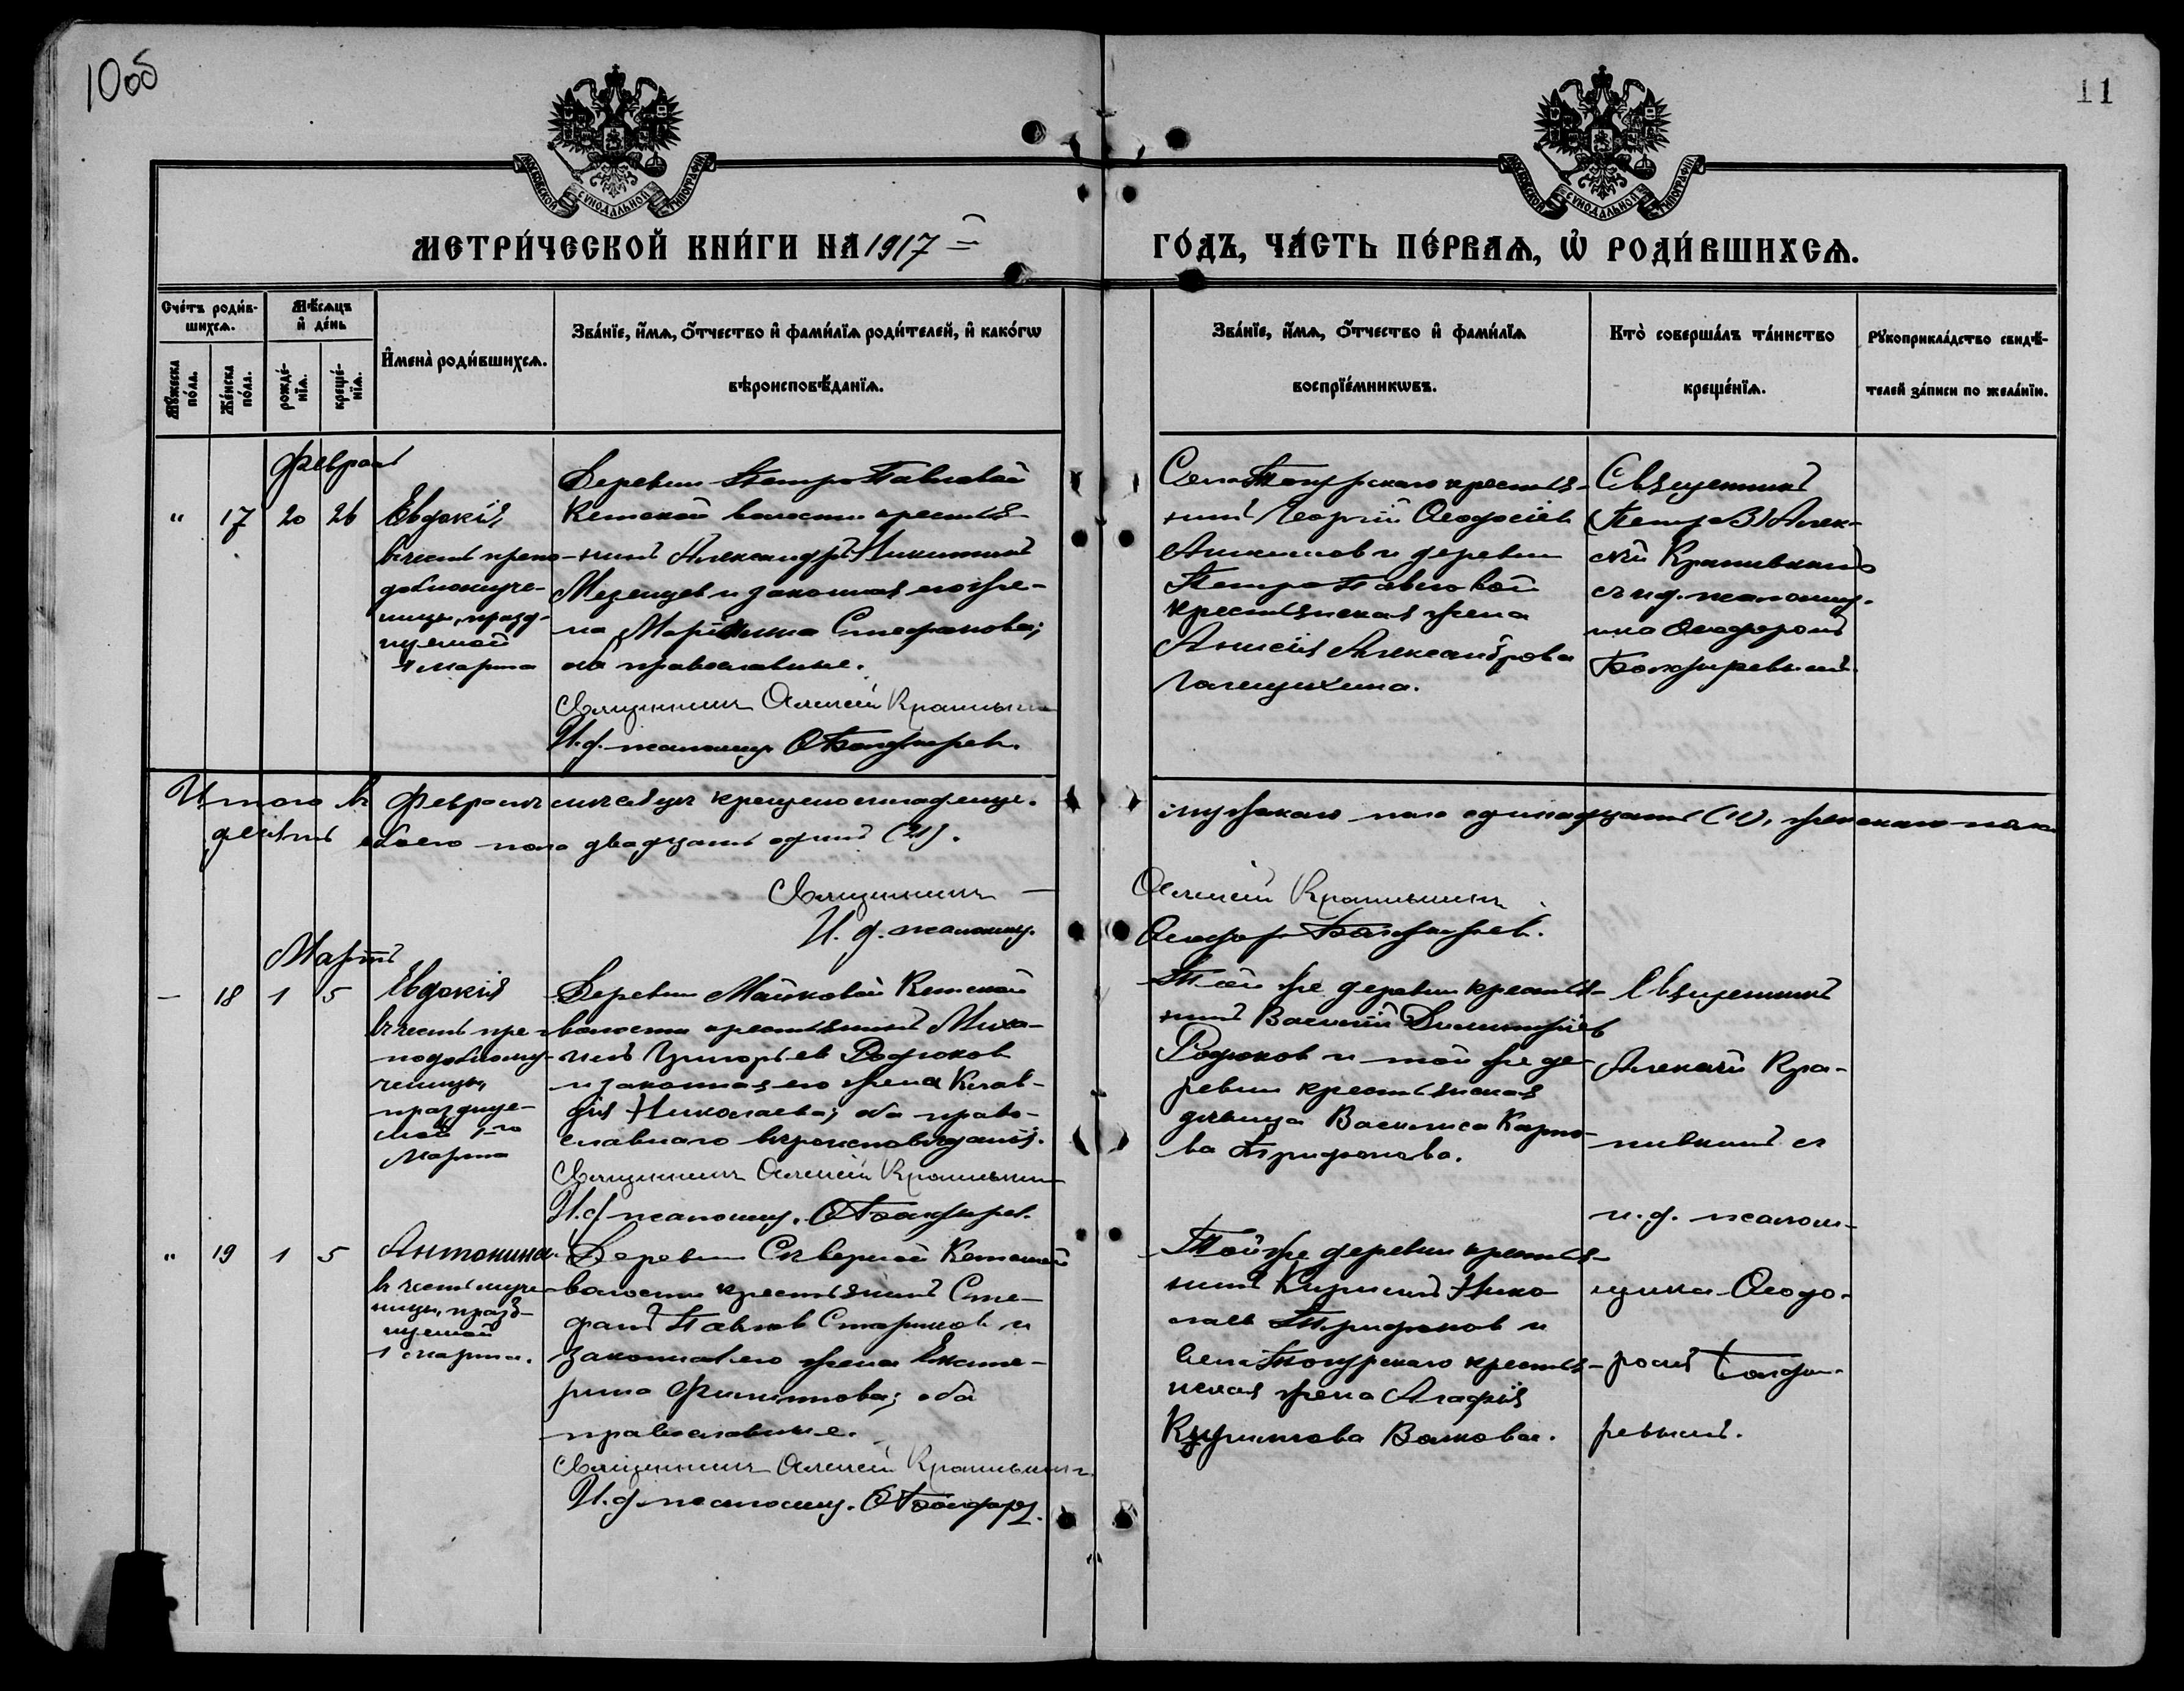 10об
11
МОСКОВСКОЙ СУНОДАЛЬНОЙ ТИПОГРАФІИ
МОСКОВСКОЙ СУНОДАЛЬНОЙ ТИПОГРАФІИ
МЕТРИ́ЧЕСКОЙ КНИ́ГИ НА 1917 -й
ГО́ДЪ, ЧА́СТЬ ПЕ́РВАѦ, Ѡ҆ РОДИ́ВШИХСѦ.
Сче́тъ роди́в-
шихсѧ.
Мѣ́сѧцъ
и҆ де́нь
Мꙋ́жеска
по́ла.
Же́нска
по́ла.
рожде́-
нїѧ.
креще́-
нїѧ.
И҆мена̀ роди́вшихсѧ.
Зва́нїе, и҆́мѧ, ѻ҆́тчество и҆ фами́лїѧ роди́телей, и҆ како́гѡ
вѣроисповѣ́данїѧ.
Зва́нїе, и҆́мѧ, ѻ҆́тчество и҆ фами́лїѧ
воспрїе́мникѡвъ.
Кто̀ соверша́лъ та́инство
креще́нїѧ.
Рꙋкоприкла́дство свидѣ́-
телей за́писи по жела́нїю.
Февраль
" 17 20 26
Евдокія,
въ честь препо-
добномуче-
ницы, празд-
нуемой
1 марта
Деревни Петро Павловой
Кетской волости крестья-
нинъ Александръ Никитинъ
Мезенцев и законная его же-
на Маріамна Стефанова;
оба православные.
Священникъ Алексѣй Крапивкинъ
И.д. псаломщ. Ѳ Болдырев.
Села Тогурскаго крестья-
нинъ Георгій Ѳеодосіев
и деревни
Петро Павловой
крестьянская жена
Анисія Александрова
Галещихина.
Священникъ
Алек-
сѣй Крапивкинъ
съ и.д. псаломщ-
ика Ѳеодоромъ
Болдыревымъ
Итого въ Февралѣ мѣсяцѣ крещено младенце.
мужскаго пола одинадцать (11), женскаго пола
десять обоего пола двадцать один (21).
Священникъ Алексѣй Крапивкинъ
И. д. псаломщ. Ѳеодор Болдырев.
Мартъ
- 18 1 5
Евдокія
въ честь пре-
подобному-
ченицы,
празднуе-
мой 1-го
Марта
Деревни Майковой Кетской
волости крестьянинъ Миха-
илъ Григорьев Родюков
и законная его жена Клав-
дія Николаева; оба право-
славнаго вѣроисповѣданія.
Священникъ Алексѣй Крапивкинъ
И.д. псаломщ. Ѳ Болдырев.
Той же деревни крестья-
нинъ Василій Димитріев
Родюков и той же де-
ревни крестьянская
дѣвица Василиса Карпо-
ва Трифонова.
Священникъ
Алексѣй Кра-
пивкинъ съ
и.д. псалом-
щика Ѳеодо-
ромъ Болды-
ревымъ.
" 19 1 5
Антонина
въ честь муче-
ницы, празд-
нуемой
1 марта.
Деревни Сѣверной Кетской
волости крестьянинъ Сте-
фанъ Павлов Стариков и
законная его жена Екате-
рина Филиппова; оба
православные.
Священникъ Алексѣй Крапивкинъ
И.д. псаломщ. Ѳ Болдырев.
Той же деревни крестья-
нинъ Кириллъ Нико-
лаев Трифонов и
Села Тогурскаго крестья-
нская жена Агафія
Волкова.